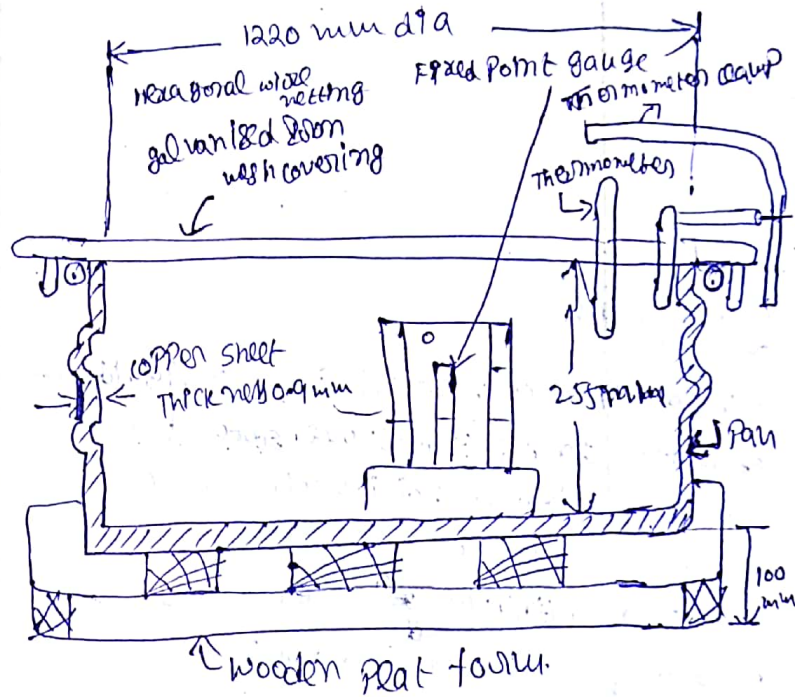 1220 mm dia
Hexagonal wire
netting
galvanised Iron
mesh covering
Fixed Point gauge
Thermometer clamp
Thermometer
copper sheet
Thickness 0.9 mm
255
Pan
100
mm
Wooden Plat form.